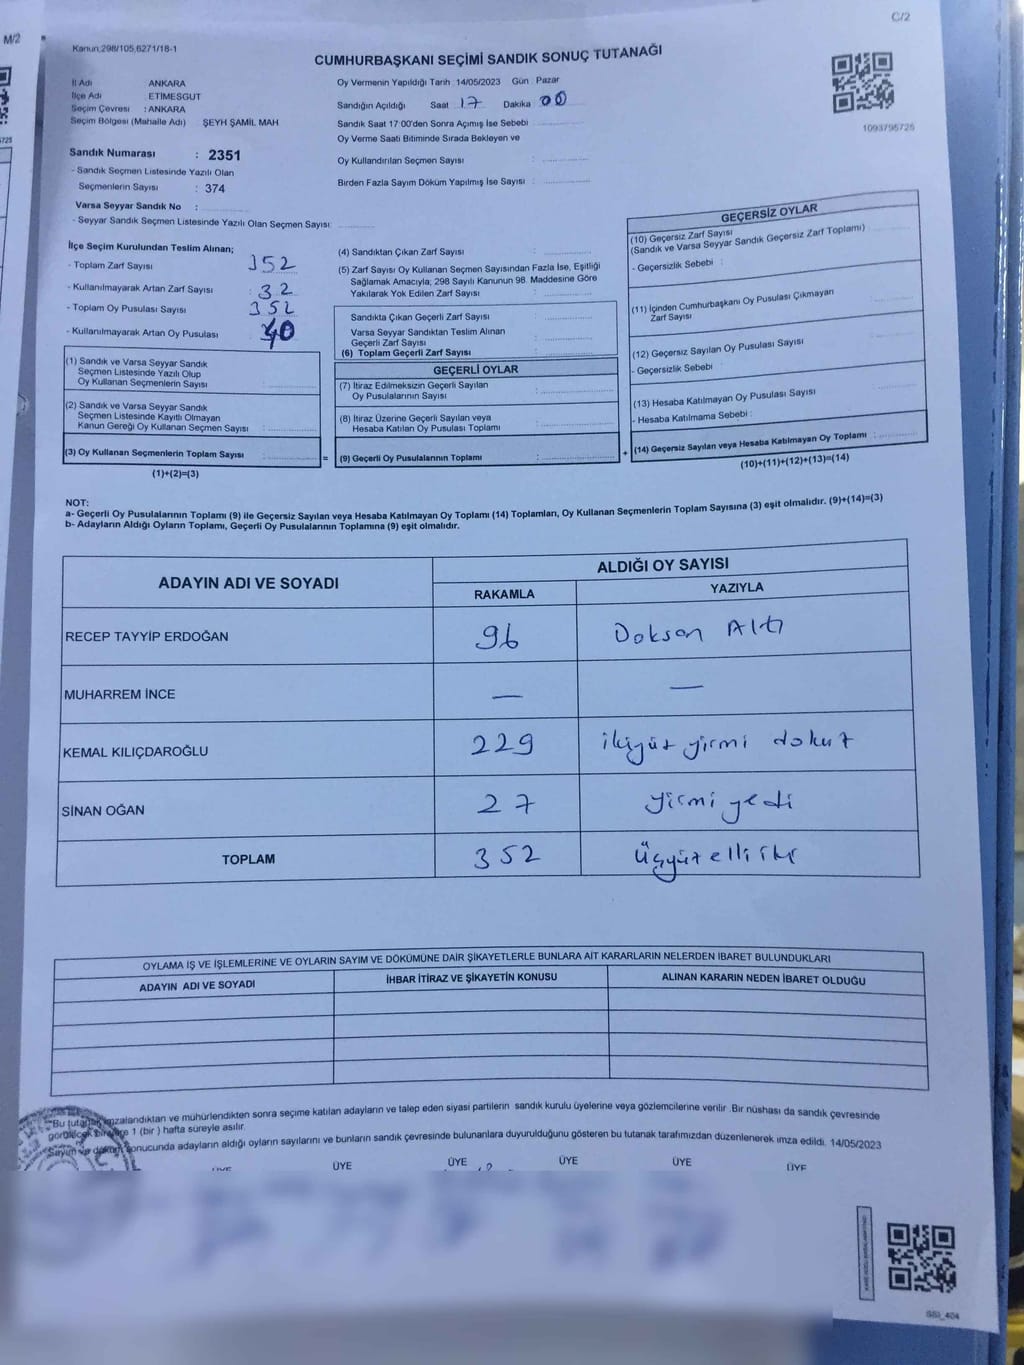 C/2
M/2
Kanun,298/105,6271/18-1
CUMHURBAŞKANI SEÇİMİ SANDIK SONUÇ TUTANAĞI
İl Adı ANKARA
İlçe Adı ETİMESGUT
Seçim Çevresi : ANKARA
Seçim Bölgesi (Mahalle Adı) ŞEYH ŞAMİL MAH
Oy Vermenin Yapıldığı Tarih 14/05/2023 Gün Pazar
Sandığın Açıldığı Saat 17 Dakika 00
Sandık Saat 17:00'den Sonra Açımış İse Sebebi :
Oy Verme Saati Bitiminde Sırada Bekleyen ve
Oy Kullandırılan Seçmen Sayısı :
Birden Fazla Sayım Döküm Yapılmış İse Sayısı :
1093795725
5725
Sandık Numarası : 2351
- Sandık Seçmen Listesinde Yazılı Olan
Seçmenlerin Sayısı : 374
Varsa Seyyar Sandık No :
- Seyyar Sandık Seçmen Listesinde Yazılı Olan Seçmen Sayısı:
İlçe Seçim Kurulundan Teslim Alınan;
- Toplam Zarf Sayısı 352
- Kullanılmayarak Artan Zarf Sayısı : 32
- Toplam Oy Pusulası Sayısı 352
- Kullanılmayarak Artan Oy Pusulası 40
(1) Sandık ve Varsa Seyyar Sandık
Seçmen Listesinde Yazılı Olup
Oy Kullanan Seçmenlerin Sayısı :
(2) Sandık ve Varsa Seyyar Sandık
Seçmen Listesinde Kayıtlı Olmayan
Kanun Gereği Oy Kullanan Seçmen Sayısı :
(3) Oy Kullanan Seçmenlerin Toplam Sayısı :
(1)+(2)=(3)
=
(4) Sandıktan Çıkan Zarf Sayısı :
(5) Zarf Sayısı Oy Kullanan Seçmen Sayısından Fazla İse, Eşitliği
Sağlamak Amacıyla; 298 Sayılı Kanunun 98. Maddesine Göre
Yakılarak Yok Edilen Zarf Sayısı :
Sandıkta Çıkan Geçerli Zarf Sayısı :
Varsa Seyyar Sandıktan Teslim Alınan
Geçerli Zarf Sayısı :
(6) Toplam Geçerli Zarf Sayısı :
GEÇERLİ OYLAR
(7) İtiraz Edilmeksizin Geçerli Sayılan
Oy Pusulalarının Sayısı :
(8) İtiraz Üzerine Geçerli Sayılan veya
Hesaba Katılan Oy Pusulası Toplamı :
(9) Geçerli Oy Pusulalarının Toplamı :
+
GEÇERSİZ OYLAR
(10) Geçersiz Zarf Sayısı
(Sandık ve Varsa Seyyar Sandık Geçersiz Zarf Toplamı)
- Geçersizlik Sebebi :
(11) İçinden Cumhurbaşkanı Oy Pusulası Çıkmayan
Zarf Sayısı
(12) Geçersiz Sayılan Oy Pusulası Sayısı :
- Geçersizlik Sebebi :
(13) Hesaba Katılmayan Oy Pusulası Sayısı
- Hesaba Katılmama Sebebi :
(14) Geçersiz Sayılan veya Hesaba Katılmayan Oy Toplamı :
(10)+(11)+(12)+(13)=(14)
NOT:
a- Geçerli Oy Pusulalarının Toplamı (9) ile Geçersiz Sayılan veya Hesaba Katılmayan Oy Toplamı (14) Toplamları, Oy Kullanan Seçmenlerin Toplam Sayısına (3) eşit olmalıdır. (9)+(14)=(3)
b- Adayların Aldığı Oyların Toplamı, Geçerli Oy Pusulalarının Toplamına (9) eşit olmalıdır.
ADAYIN ADI VE SOYADI ALDIĞI OY SAYISI
RAKAMLA YAZIYLA
RECEP TAYYİP ERDOĞAN 96 Doksan Altı
MUHARREM İNCE — —
KEMAL KILIÇDAROĞLU 229 ikiyüz yirmi dokuz
SİNAN OĞAN 27 yirmi yedi
TOPLAM 352 Üçyüz elli iki
OYLAMA İŞ VE İŞLEMLERİNE VE OYLARIN SAYIM VE DÖKÜMÜNE DAİR ŞİKAYETLERLE BUNLARA AİT KARARLARIN NELERDEN İBARET BULUNDUKLARI
ADAYIN ADI VE SOYADI İHBAR İTİRAZ VE ŞİKAYETİN KONUSU ALINAN KARARIN NEDEN İBARET OLDUĞU
Bu tutanak imzalandıktan ve mühürlendikten sonra seçime katılan adayların ve talep eden siyasi partilerin sandık kurulu üyelerine veya gözlemcilerine verilir .Bir nüshası da sandık çevresinde
görülecek bir yere 1 (bir ) hafta süreyle asılır.
Sayım ve döküm sonucunda adayların aldığı oyların sayılarını ve bunların sandık çevresinde bulunanlara duyurulduğunu gösteren bu tutanak tarafımızdan düzenlenerek imza edildi. 14/05/2023
ÜYE ÜYE ÜYE ÜYE ÜYE ÜYE